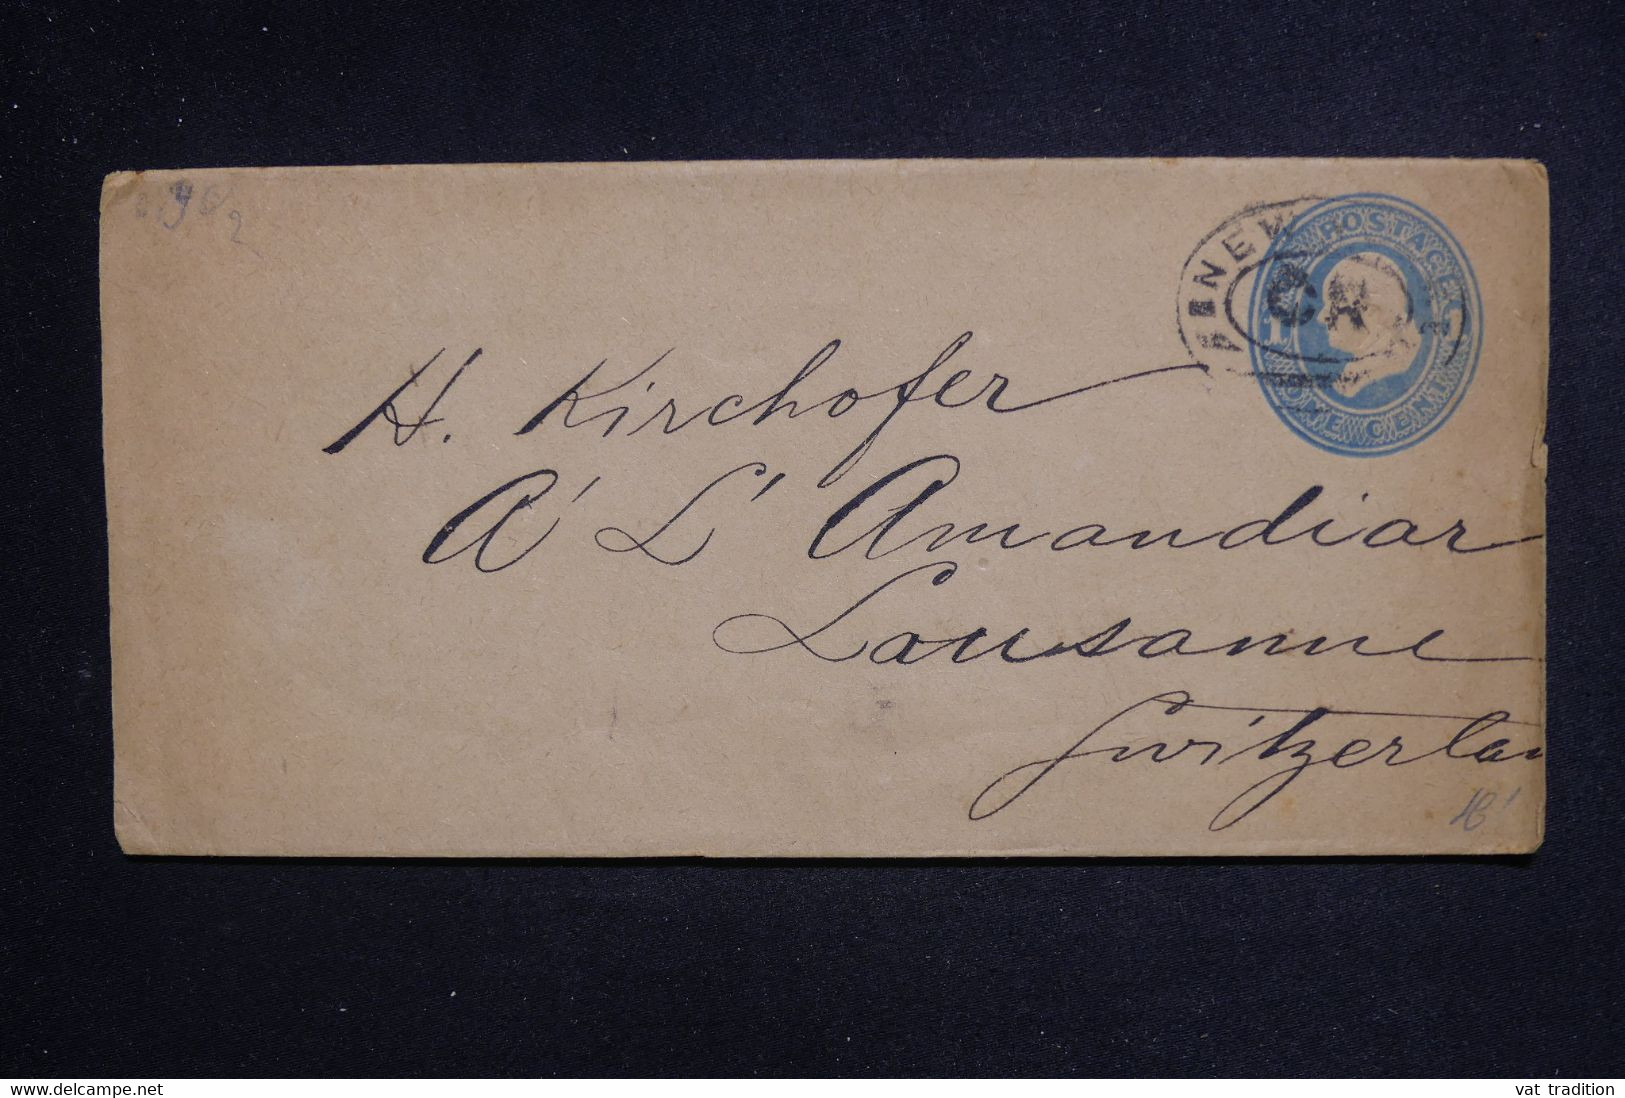 POSTAGE
1 1
ONE CENT
NEW
H. Kirchofer
A' L' Amandiar
Lausanne
Switzerlan
www.delcampe.net
vat_tradition